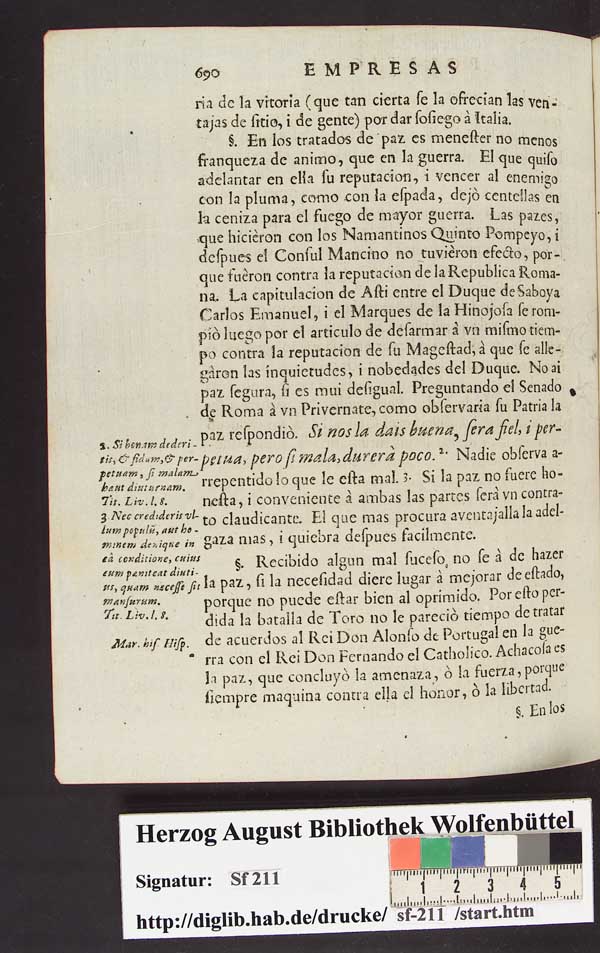 690 EMPRESAS
ria de la vitoria (que tan cierta ſe la ofrecian las ven-
tajas de ſitio, i de gente) por dar ſoſiego à Italia.
§. En los tratados de paz es meneſter no menos
franqueza de animo, que en la guerra. El que quiſo
adelantar en ella ſu reputacion, i vencer al enemigo
con la pluma, como con la eſpada, dejò centellas en
la ceniza para el fuego de mayor guerra. Las pazes,
que hicièron con los Namantinos Quinto Pompeyo, i
deſpues el Conſul Mancino no tuvièron efecto, por-
que fuèron contra la reputacion de la Republica Roma-
na. La capitulacion de Aſti entre el Duque de Saboya
Carlos Emanuel, i el Marques de la Hinojoſa ſe rom-
piò luego por el articulo de deſarmar à vn miſmo tiem-
po contra la reputacion de ſu Mageſtad, à que ſe alle-
gàron las inquietudes, i nobedades del Duque. No ai
paz ſegura, ſi es mui deſigual. Preguntando el Senado
de Roma à vn Privernate, como obſervaria ſu Patria la
paz reſpondiò. Si nos la dais buena, ſera fiel, i per-
petua, pero ſi mala, durerà poco. 2. Nadie obſerva a-
rrepentido lo que le eſta mal. 3. Si la paz no fuere ho-
neſta, i conveniente à ambas las partes ſerà vn contra-
to claudicante. El que mas procura aventajalla la adel-
gaza mas, i quiebra deſpues facilmente.
§. Recibido algun mal ſuceſo, no ſe à de hazer
la paz, ſi la neceſidad diere lugar à mejorar de eſtado,
porque no puede eſtar bien al oprimido. Por eſto per-
dida la batalla de Toro no le pareciò tiempo de tratar
de acuerdos al Rei Don Alonſo de Portugal en la gue-
rra con el Rei Don Fernando el Catholico. Achacoſa es
la paz, que concluyò la amenaza, ò la fuerza, porque
ſiempre maquina contra ella el honor, ò la libertad.
§. En los
2. Si bonam dederi-
tis, & fidam, & per-
petuam, ſi malam
haut diuturnam.
Tit. Liv. l. 8.
3 Nec credideris vl-
lum populū, aut ho-
minem denique in
eâ conditione, cuius
eum pœniteat diuti-
us, quam neceſſe ſit
manſurum.
Tit. Liv. l. 8.
Mar. hiſ Hiſp.
Herzog August Bibliothek Wolfenbüttel
Signatur: Sf 211
http://diglib.hab.de/drucke/ sf-211 /start.htm
1 2 3 4 5